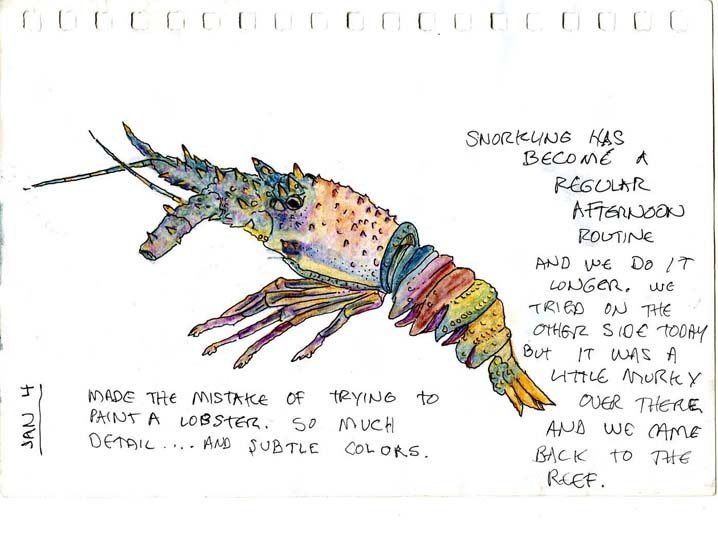 SNORKLING HAS
BECOME A
REGULAR
AFTERNOON
ROUTINE
AND WE DO IT
LONGER. WE
TRIED ON THE
OTHER SIDE TODAY
BUT IT WAS A
LITTLE MURKY
OVER THERE
AND WE CAME
BACK TO THE
REEF.
JAN 4
MADE THE MISTAKE OF TRYING TO
PAINT A LOBSTER. SO MUCH
DETAIL.... AND SUBTLE COLORS.